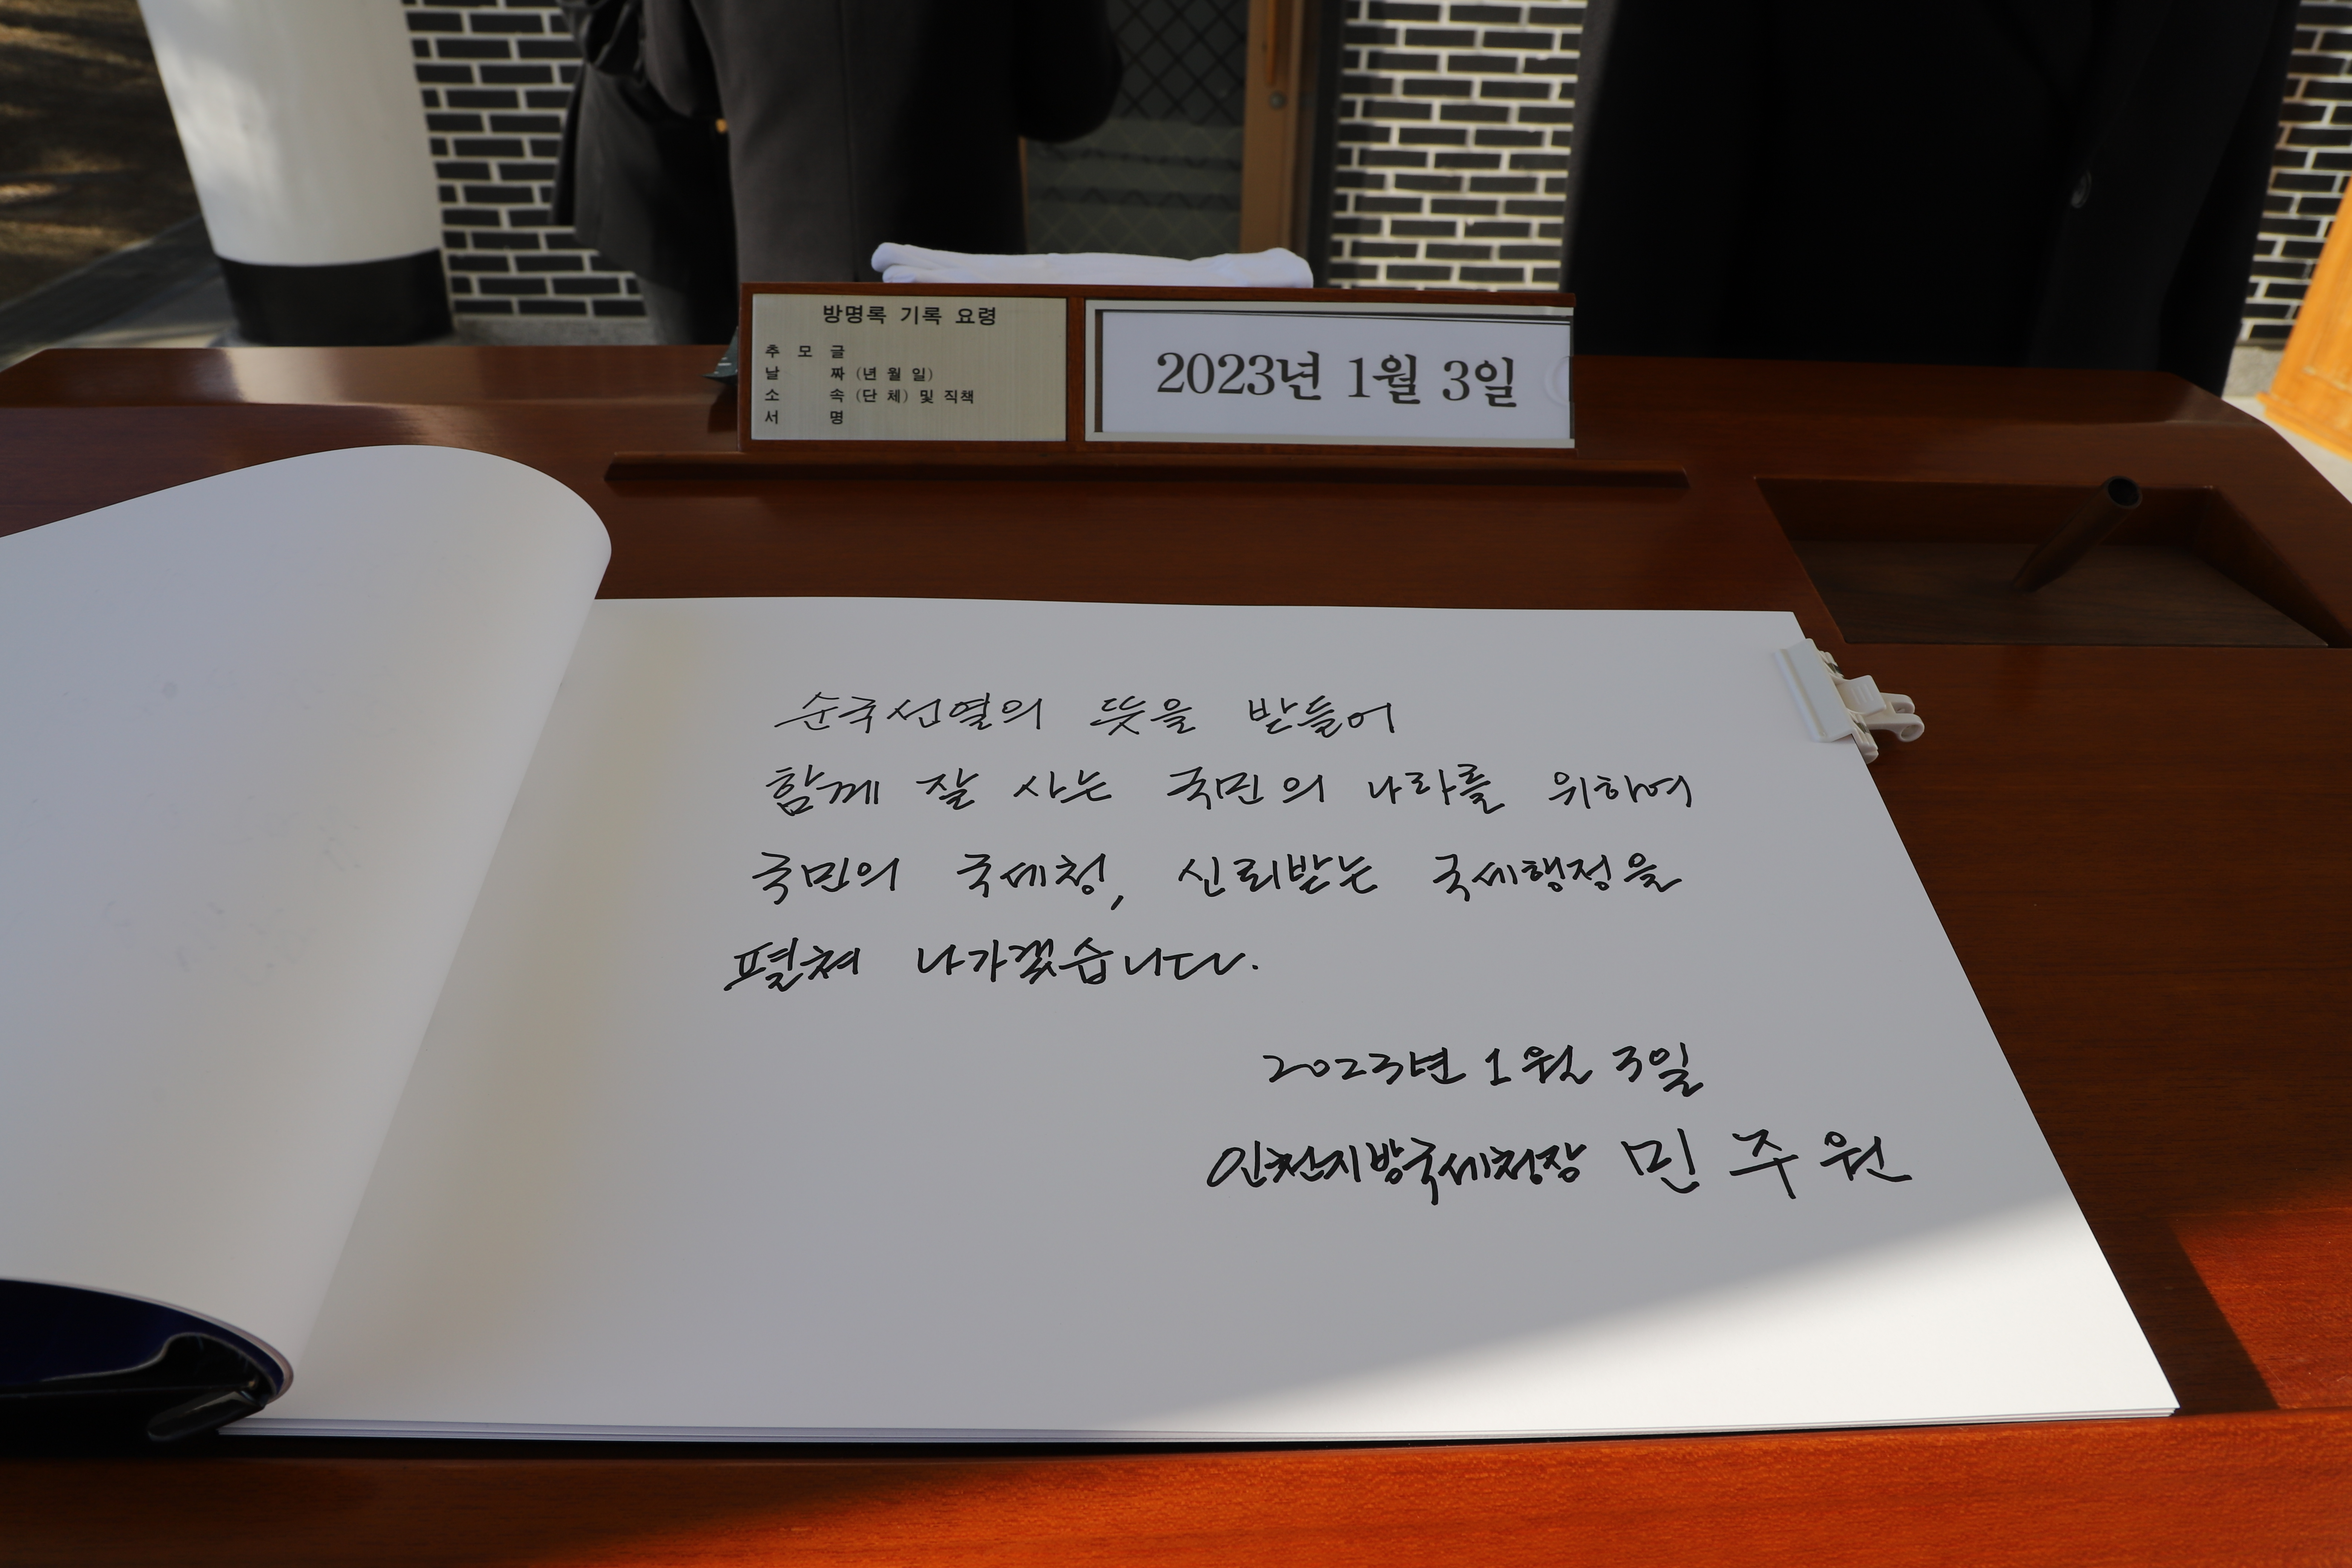 방명록 기록 요령
추 모 글
날 짜 (년 월 일)
소 속 (단 체) 및 직책
서 명
2023년 1월 3일
순국선열의 뜻을 받들어
함께 잘 사는 국민의 나라를 위하여
국민의 국세청, 신뢰받는 국세행정을
펼쳐 나가겠습니다.
2023년 1월 3일
인천지방국세청장 민주원